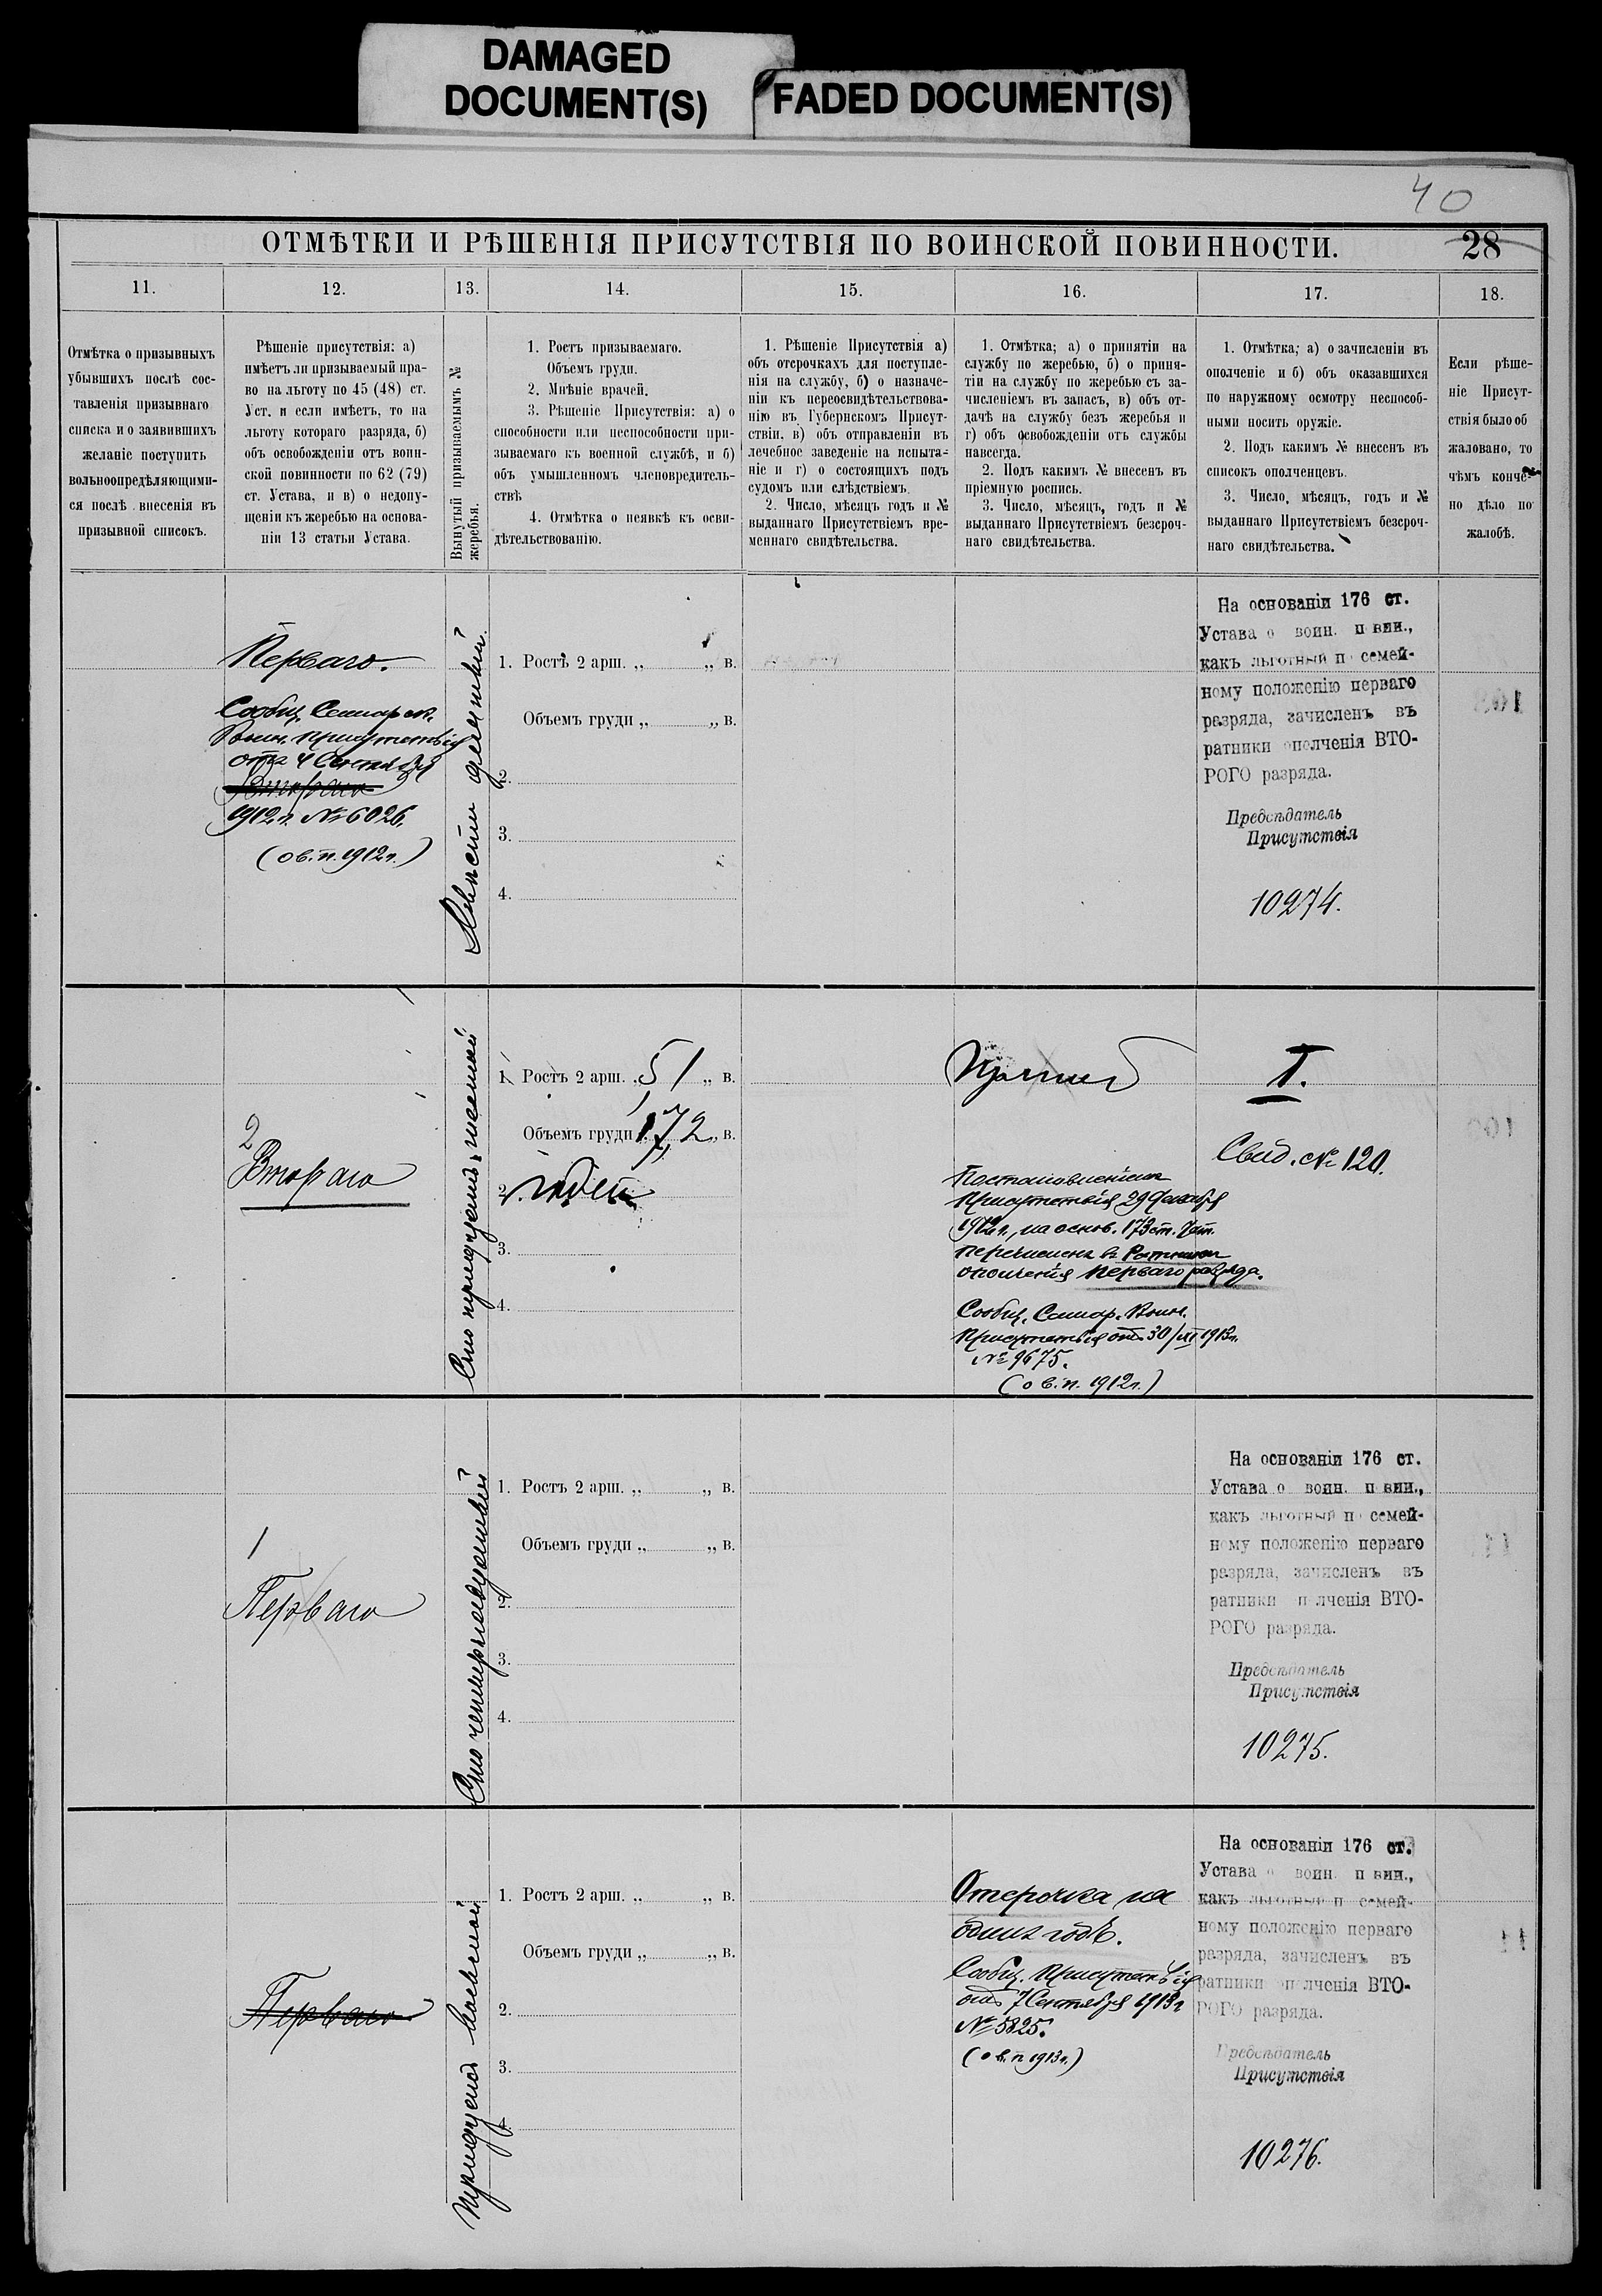 DAMAGED
DOCUMENT(S)
FADED DOCUMENT(S)
40
ОТМѢТКИ И РѢШЕНІЯ ПРИСУТСТВІЯ ПО ВОИНСКОЙ ПОВИННОСТИ.
28
11.
12.
13.
14.
15.
16.
17.
18.
Отмѣтка о призывныхъ
убывшихъ послѣ сос-
тавленія призывнаго
списка и о заявившихъ
желаніе поступить
вольноопредѣляющими-
ся послѣ внесенія въ
призывной списокъ.
Рѣшеніе присутствія: а)
имѣетъ ли призываемый пра-
во на льготу по 45 (48) ст.
Уст. и если имѣетъ, то на
льготу котораго разряда, б)
объ освобожденіи отъ воин-
ской повинности по 62 (79)
ст. Устава, и в) о недопу-
щеніи къ жеребью на основа-
ніи 13 статьи Устава.
Вынутый призываемымъ №
жеребья.
1. Ростъ призываемаго.
Объемъ груди.
2. Мнѣніе врачей.
3. Рѣшеніе Присутствія: а) о
способности или неспособности при-
зываемаго къ военной службѣ, и б)
объ умышленномъ членовредитель-
ствѣ
4. Отмѣтка о неявкѣ къ осви-
дѣтельствованію.
1. Рѣшеніе Присутствія а)
объ отсрочкахъ для поступле-
нія на службу, б) о назначе-
ніи къ переосвидѣтельствова-
нію въ Губернскомъ Присут-
ствіи, в) объ отправленіи въ
лечебное заведеніе на испыта-
ніе и г) о состоящихъ подъ
судомъ или слѣдствіемъ.
2. Число, мѣсяцъ годъ и №
выданнаго Присутствіемъ вре-
меннаго свидѣтельства.
1. Отмѣтка; а) о принятіи на
службу по жеребью, б) о приня-
тіи на службу по жеребью съ за-
численіемъ въ запасъ, в) объ от-
дачѣ на службу безъ жеребья и
г) объ освобожденіи отъ службы
навсегда.
2. Подъ какимъ № внесенъ въ
пріемную роспись.
3. Число, мѣсяцъ, годъ и №
выданнаго Присутствіемъ безсроч-
наго свидѣтельства.
1. Отмѣтка; а) о зачисленіи въ
ополченіе и б) объ оказавшихся
по наружному осмотру неспособ-
ными носить оружіе.
2. Подъ какимъ № внесенъ въ
списокъ ополченцевъ.
3. Число, мѣсяцъ, годъ и №
выданнаго Присутствіемъ безсроч-
наго свидѣтельства.
Если рѣше-
ніе Присут-
ствія было об
жаловано, то
чѣмъ конче-
но дѣло по
жалобѣ.
Перваго.
Сообщ. Самарск.
Воин. присутствія
отъ 4 Сентября
Втораго
1912 г. № 6026.
(о в. п. 1912 г.)
1. Ростъ 2 арш. „ „ в.
Объемъ груди „ „ в.
2.
3.
4.
На основаніи 176 ст.
Устава о воин. повин.,
какъ льготный по семей-
ному положенію перваго
разряда, зачисленъ въ
ратники ополченія ВТО-
РОГО разряда.
Предсѣдатель
Присутствія
10274.
2
Втораго
Сто тридцать шестой
1. Ростъ 2 арш. „ 5 1 „ в.
Объемъ груди „ 172 „ в.
2. годен
3.
4.
Принят
Постановленіем
Присутствія 29 Декабря
1912 г., на основ. 173 ст. Уст.
перечислен в Ратники
ополченія перваго разряда.
Сообщ. Самар. Воин.
Присутствія отъ 30/XII 1912 г.
№ 9675.
(о в. п. 1912 г.)
I.
Свид. № 120.
1
Перваго
1. Ростъ 2 арш. „ „ в.
Объемъ груди „ „ в.
2.
3.
4.
На основаніи 176 ст.
Устава о воин. повин.,
какъ льготный по семей-
ному положенію перваго
разряда, зачисленъ въ
ратники ополченія ВТО-
РОГО разряда.
Предсѣдатель
Присутствія
10275.
Перваго
Тридцать восьмой
1. Ростъ 2 арш. „ „ в.
Объемъ груди „ „ в.
2.
3.
4.
Отсрочка на
одинъ годъ.
Сообщ. Присутствія
отъ 7 Сентября 1913 г
№ 5825.
(о в. п 1913 г.)
На основаніи 176 ст.
Устава о воин. повин.,
какъ льготный по семей-
ному положенію перваго
разряда, зачисленъ въ
ратники ополченія ВТО-
РОГО разряда.
Предсѣдатель
Присутствія
10276.